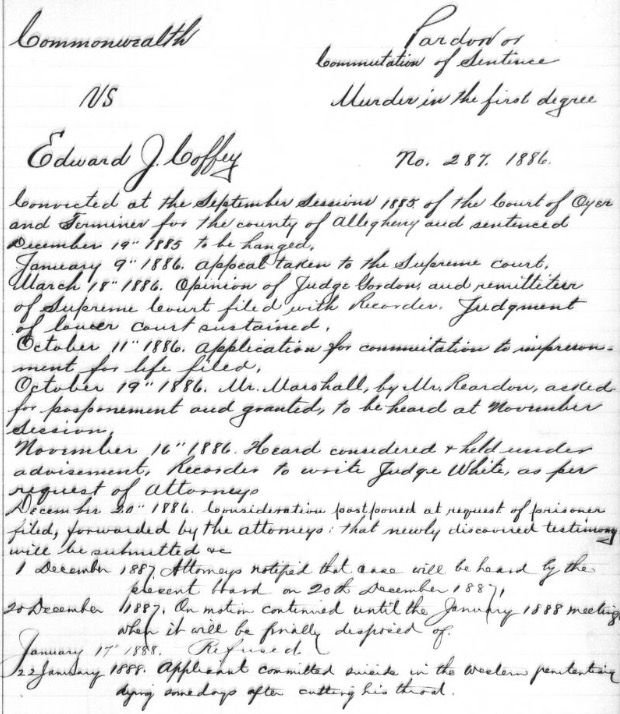 Commonwealth
Pardon or
Commutation of Sentence
VS
Murder in the first degree
Edward J. Coffey
No. 287. 1886.
Convicted at the September Sessions 1885 of the Court of Oyer
and Terminer for the county of Allegheny and sentenced
December 19" 1885 to be hanged.
January 9" 1886. Appeal taken to the Supreme court.
March 18" 1886. Opinion of Judge Gordon, and remittiter
of Supreme Court filed with Recorder. Judgment
of lower court sustained.
October 11" 1886. Application for commutation to imprison-
ment for life filed.
October 19" 1886. Mr. Marshall, by Mr. Reardon, asked
for posponement and granted, to be heard at November
Session.
November 16" 1886. Heard considered & held under
advisement, Recorder to write Judge White, as per
request of Attorneys
December 20" 1886. Consideration postponed at request of prisoner
filed, forwarded by the attorneys: that newly discovered testimony
will be submitted &c
1 December 1887, Attorneys notified that case will be heard by the
present board on 20th December 1887,
20 December 1887. On motion continued until the January 1888 meeting
when it will be finally disposed of.
January 17" 1888. Refused
22 January 1888. Applicant committed suicide in the western penitentiary
dying somedays after cutting his throat.